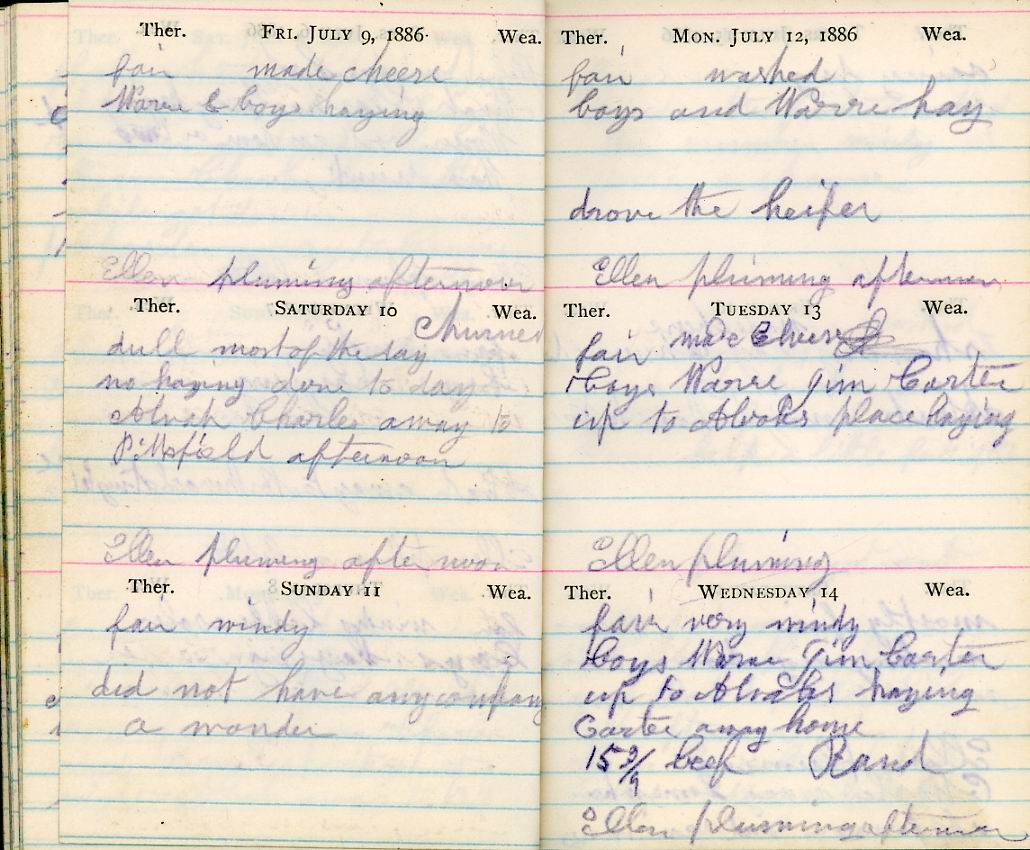 Ther. FRI. JULY 9, 1886. Wea.
fair made cheese
Warre & boys haying
Ellen pluming afternoon
Ther. SATURDAY 10 Wea.
Churned
dull most of the day
no haying done to day
Alvah Charles away to
Pittsfield afternoon
Ellen pluming after noon
Ther. SUNDAY 11 Wea.
fair windy
did not have any company
a wonder
Ther. MON. JULY 12, 1886 Wea.
fair washed
boys and Warre hay
drove the heifer
Ellen pluming afternoon
Ther. TUESDAY 13 Wea.
fair made cheese
boys Warre Jim Carter
up to Alvahs place haying
Ellen pluming
Ther. WEDNESDAY 14 Wea.
fair very windy
boys Warre Jim Carter
up to Alvahs haying
Carter away home
beef
Ellen pluming afternoon